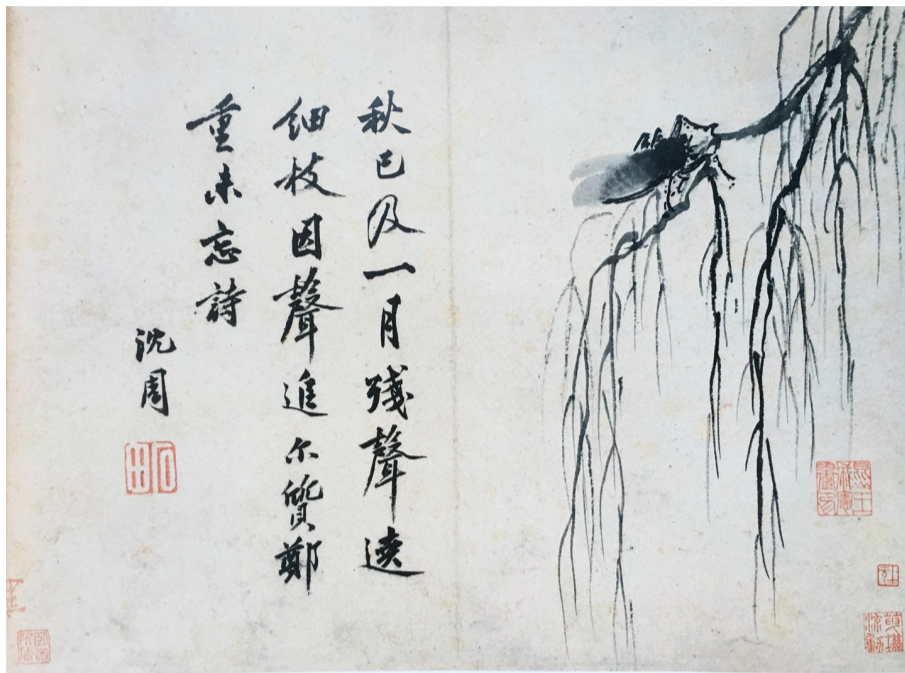 秋已及一月殘聲遶
細枝因聲進尔質鄭
重未忘詩
沈周
石田